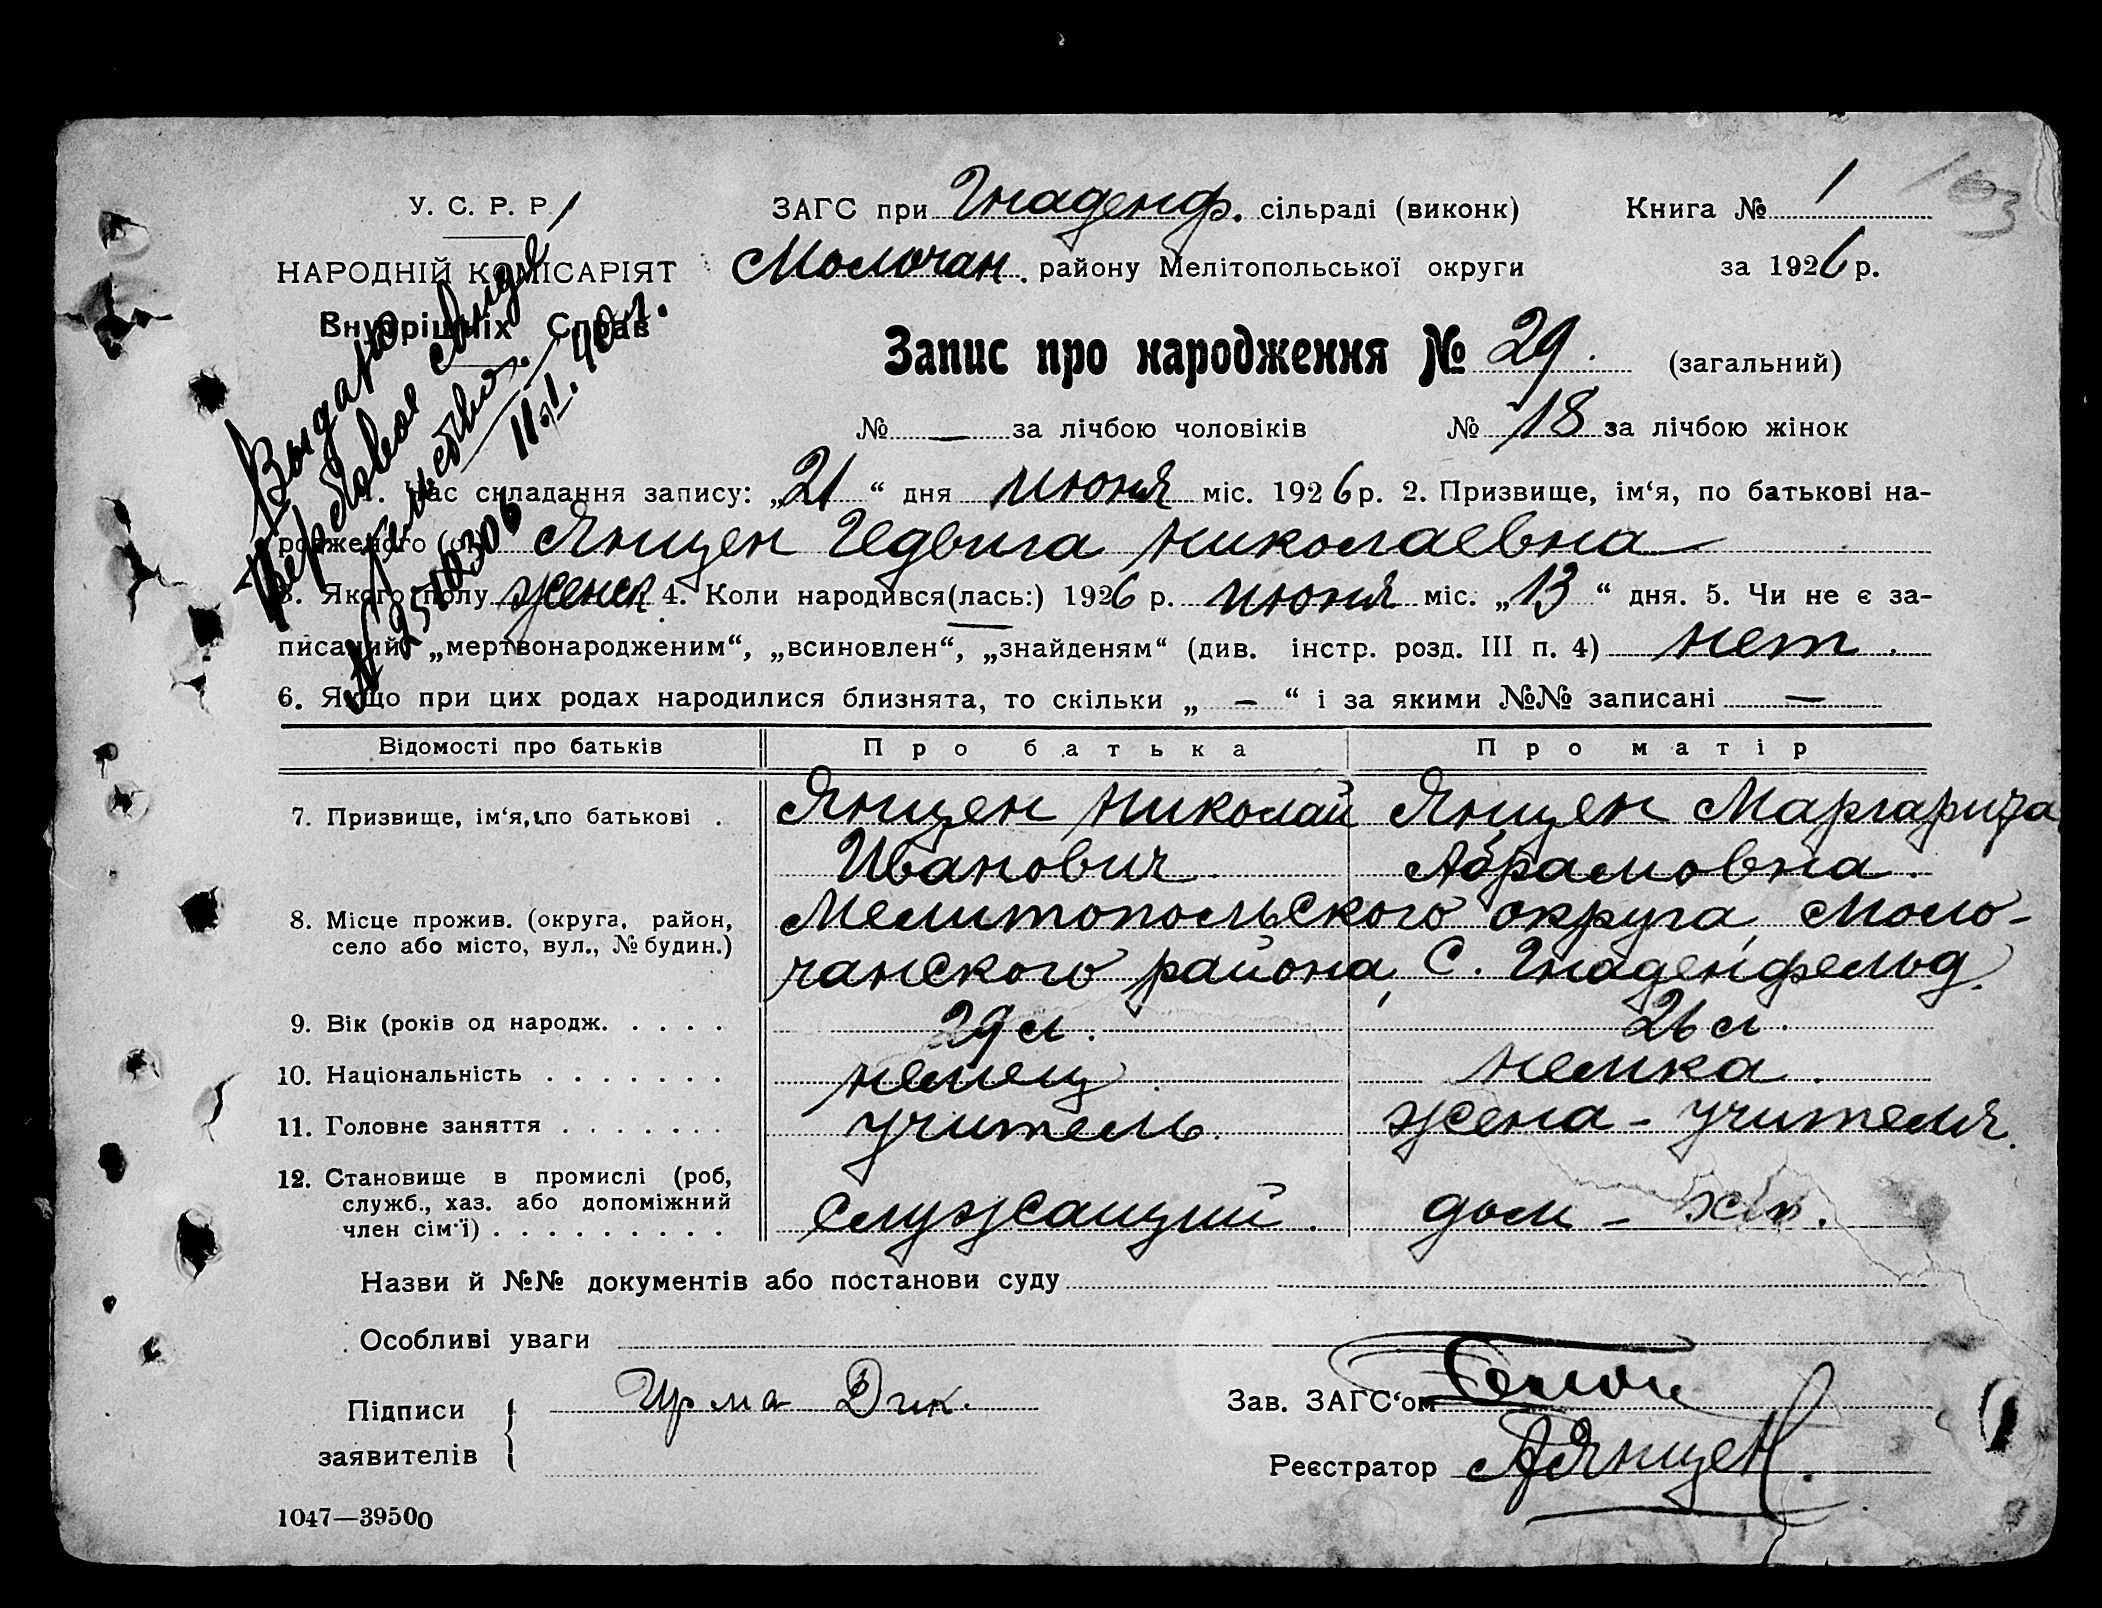 У. С. Р. Р.
НАРОДНІЙ КОМІСАРІЯТ
Внутрішніх Справ
ЗАГС при Гнаденф. сільраді (виконк)
Книга № 1
103
Молочан. району Мелітопольської округи
за 1926 р.
Запис про народження № 29. (загальний)
№ — за лічбою чоловіків № 18 за лічбою жінок
Выдано
повторное свид.
11/VI. 40 г.
1. Час складання запису: „21“ дня июня міс. 1926 р. 2. Призвище, ім‘я, по батькові на-
родженого (ої) Янцен Гедвига Николаевна
3. Якого полу женск 4. Коли народився(лась:) 1926 р. июня міс. „13“ дня. 5. Чи не є за-
писаний „мертвонародженим“, „всиновлен“, „знайденям“ (див. інстр. розд. III п. 4) нет.
6. Якщо при цих родах народилися близнята, то скільки „ — “ і за якими №№ записані —
Відомості про батьків Про батька Про матір
7. Призвище, ім‘я, по батькові . Янцен Николай Янцен Маргарита
Иванович Абрамовна.
8. Місце прожив. (округа, район, село або місто, вул., № будин.) Мелитопольского округа, Моло-
чанского района, С. Гнаденфельд.
9. Вік (років од народж. . . . . 29 л. 26 л.
10. Національність . . . . . . . немец. немка.
11. Головне заняття . . . . . . . учитель. жена - учителя.
12. Становище в промислі (роб, служб., хаз. або допоміжний член сім‘ї) . . . . . . . . . служащий. дом - хоз.
Назви й №№ документів або постанови суду
Особливі уваги
Підписи
заявителів
Ирма Дик.
Зав. ЗАГС‘ом
Реєстратор АЯнцен.
1047—39500